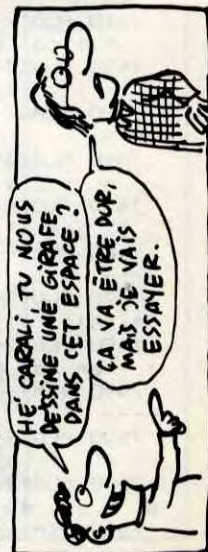 HÉ CARALI, TU NOUS
DESSINE UNE GIRAFE
DANS CET ESPACE ?
ÇA VA ÊTRE DUR,
MAIS JE VAIS
ESSAYER.